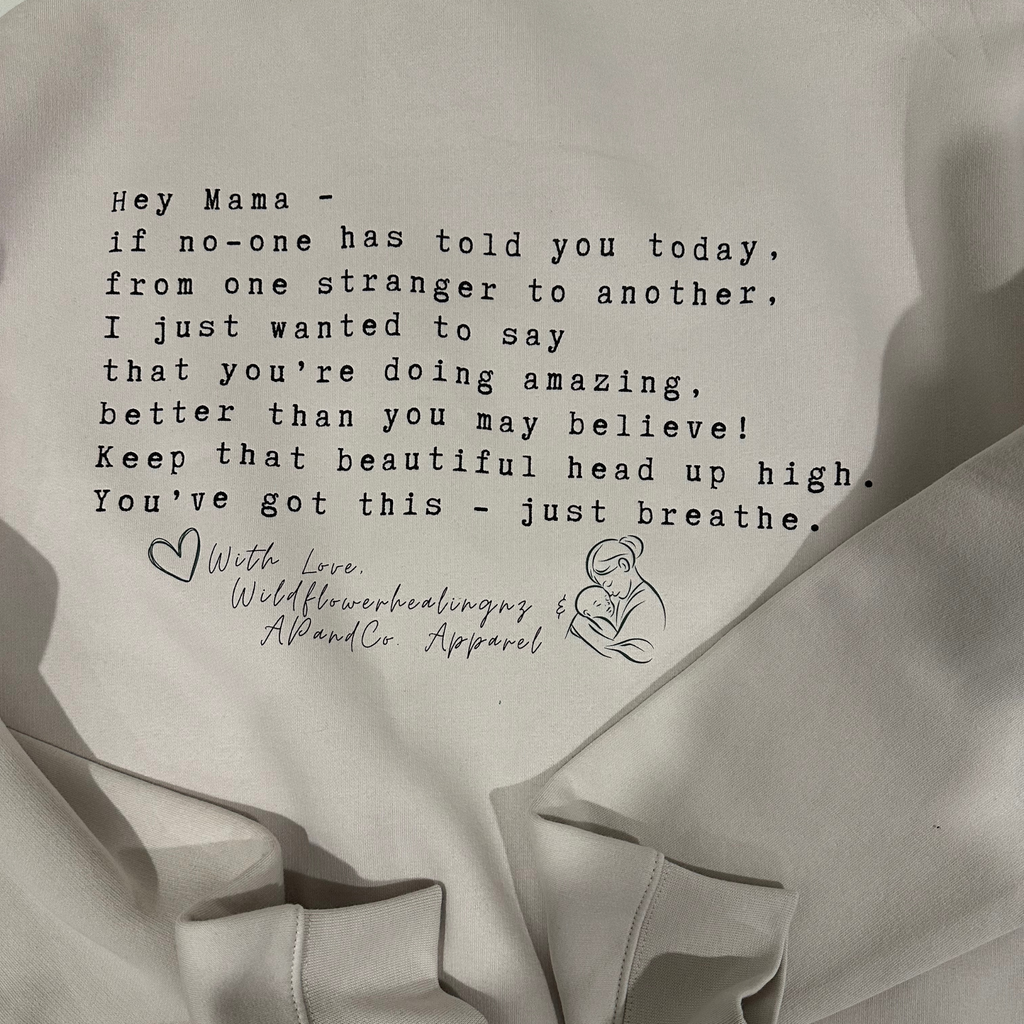 Hey Mama -
if no-one has told you today,
from one stranger to another,
I just wanted to say
that you're doing amazing,
better than you may believe!
Keep that beautiful head up high.
You've got this - just breathe.
With Love,
Wildflowerhealingnz &
APandCo. Apparel